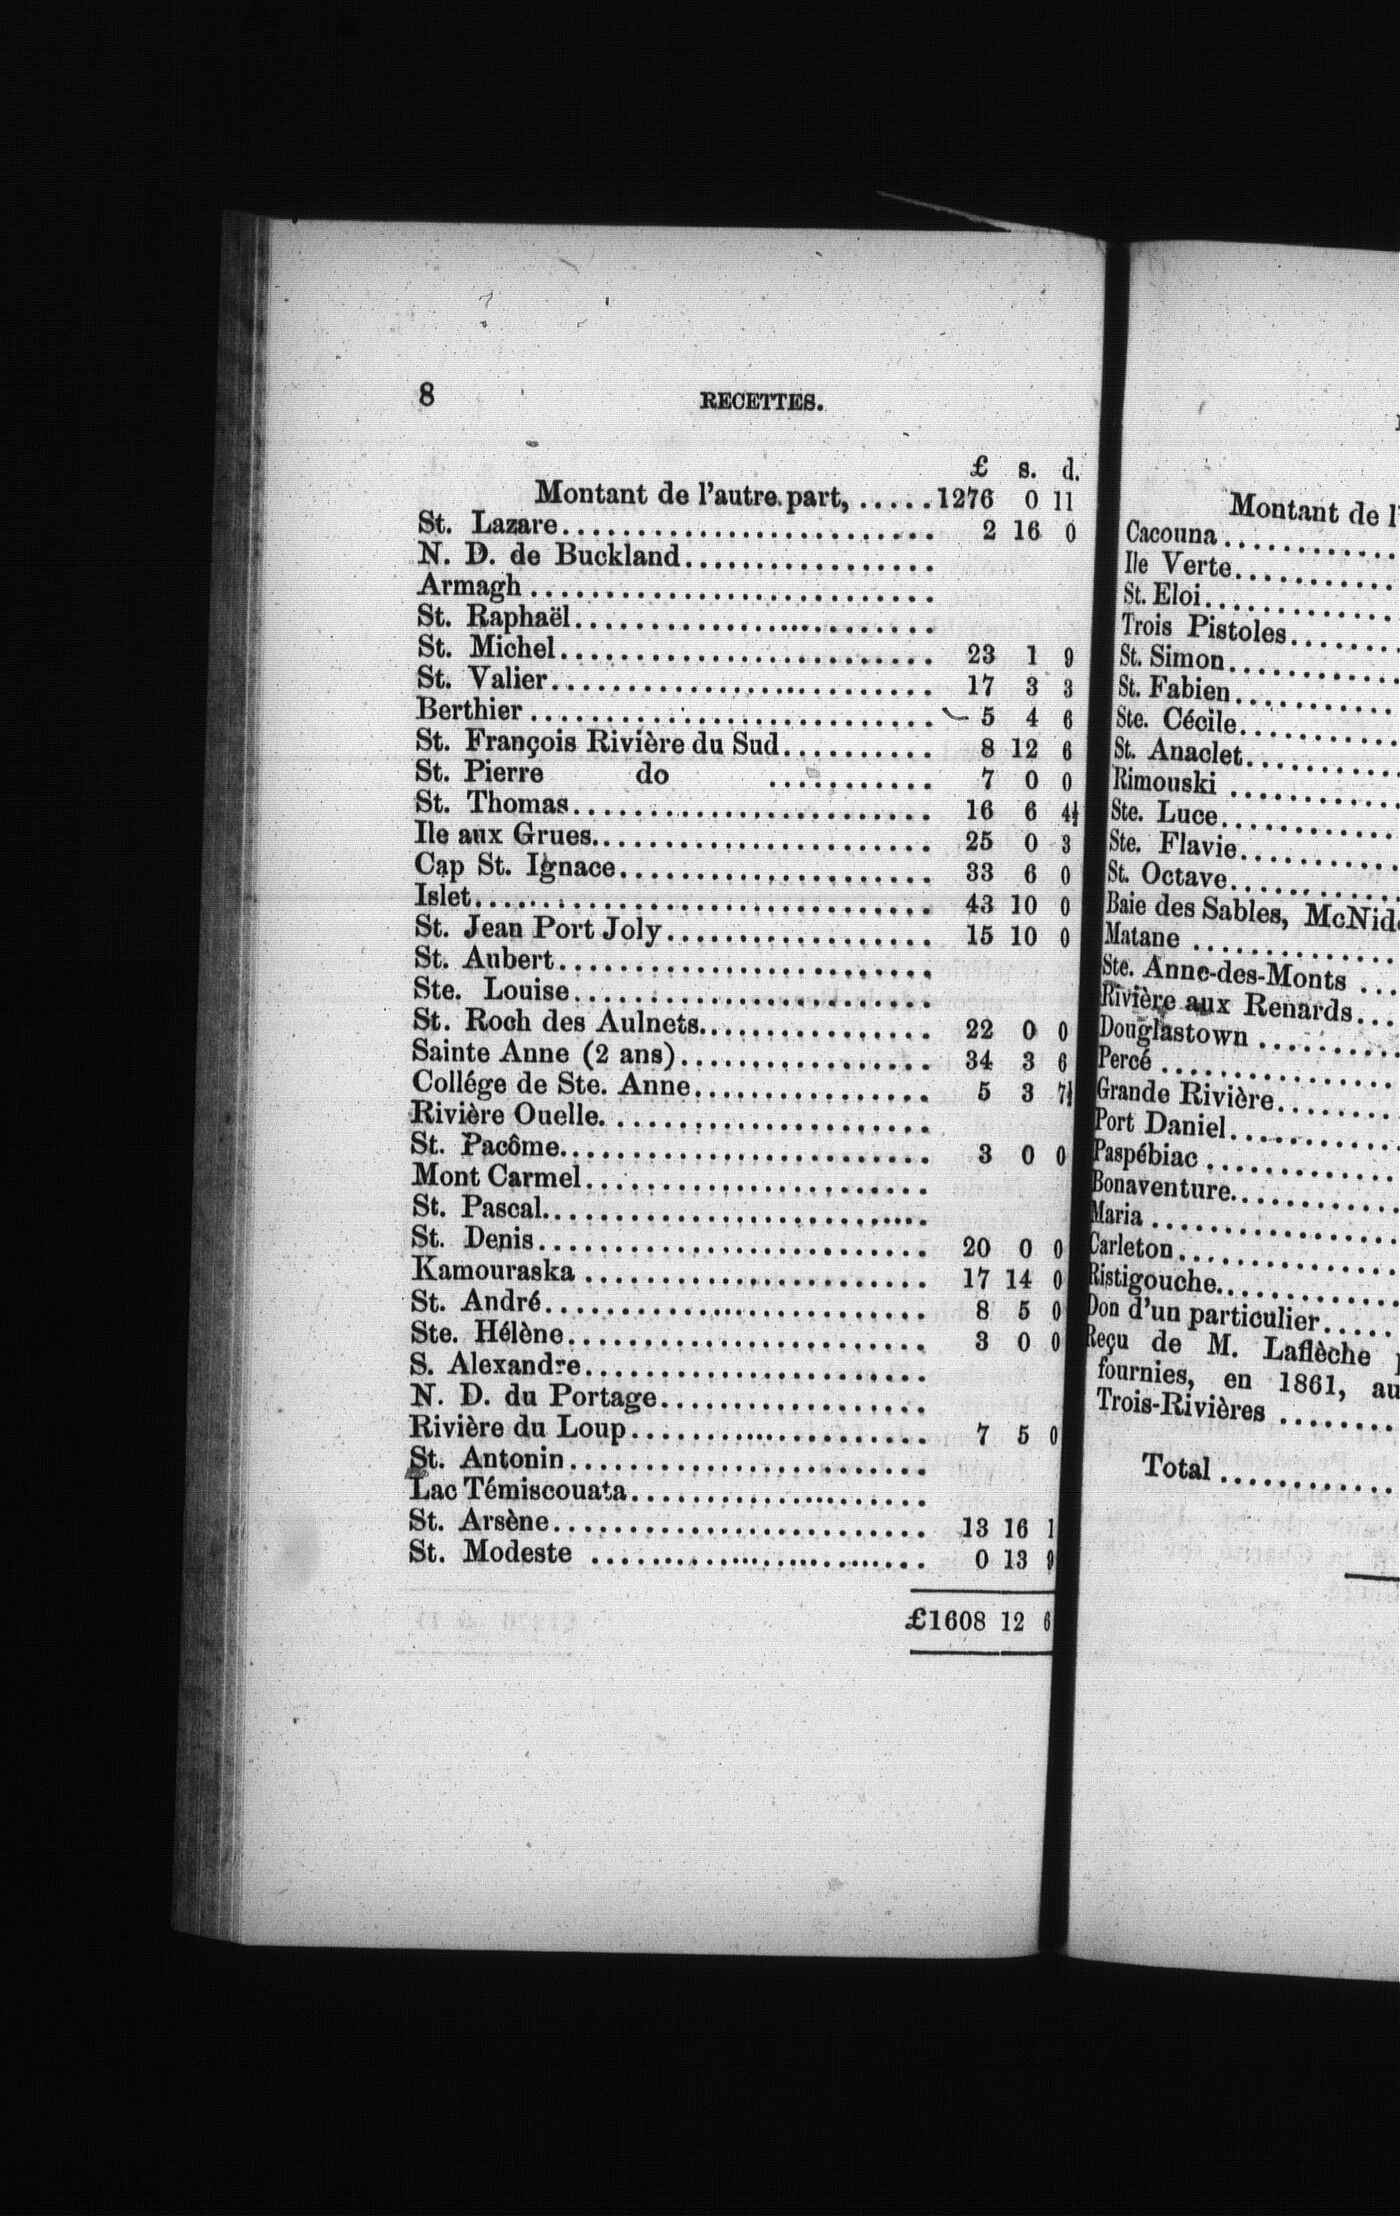 8 RECETTES.
£ s. d.
Montant de l'autre part, ..... 1276 0 11
St. Lazare........................ 2 16 0
N. D. de Buckland................
Armagh ..........................
St. Raphaël.......................
St. Michel........................ 23 1 9
St. Valier........................ 17 3 3
Berthier .......................... 5 4 6
St. François Rivière du Sud.......... 8 12 6
St. Pierre do ........... 7 0 0
St. Thomas....................... 16 6 4½
Ile aux Grues...................... 25 0 3
Cap St. Ignace.................... 33 6 0
Islet.............................. 43 10 0
St. Jean Port Joly................. 15 10 0
St. Aubert........................
Ste. Louise.......................
St. Roch des Aulnets............... 22 0 0
Sainte Anne (2 ans)................ 34 3 6
Collége de Ste. Anne............... 5 3 7½
Rivière Ouelle.....................
St. Pacôme........................ 3 0 0
Mont Carmel......................
St. Pascal.........................
St. Denis.......................... 20 0 0
Kamouraska ...................... 17 14 0
St. André......................... 8 5 0
Ste. Hélène....................... 3 0 0
S. Alexandre......................
N. D. du Portage..................
Rivière du Loup................... 7 5 0
St. Antonin.......................
Lac Témiscouata...................
St. Arsène........................ 13 16 1
St. Modeste ...................... 0 13 9
£1608 12 6
Montant de l'
Cacouna............
Ile Verte...........
St. Eloi.............
Trois Pistoles.......
St. Simon...........
St. Fabien...........
Ste. Cécile..........
St. Anaclet..........
Rimouski ...........
Ste. Luce............
Ste. Flavie..........
St. Octave...........
Baie des Sables,
Matane .............
Ste. Anne-des-Monts ...
Rivière aux Renards...
Douglastown .........
Percé ...............
Grande Rivière........
Port Daniel...........
Paspébiac ............
Bonaventure..........
Maria ...............
Carleton..............
Ristigouche...........
Don d'un particulier.....
Reçu de M. Laflèche
fournies, en 1861, au
Trois-Rivières ........
Total ............